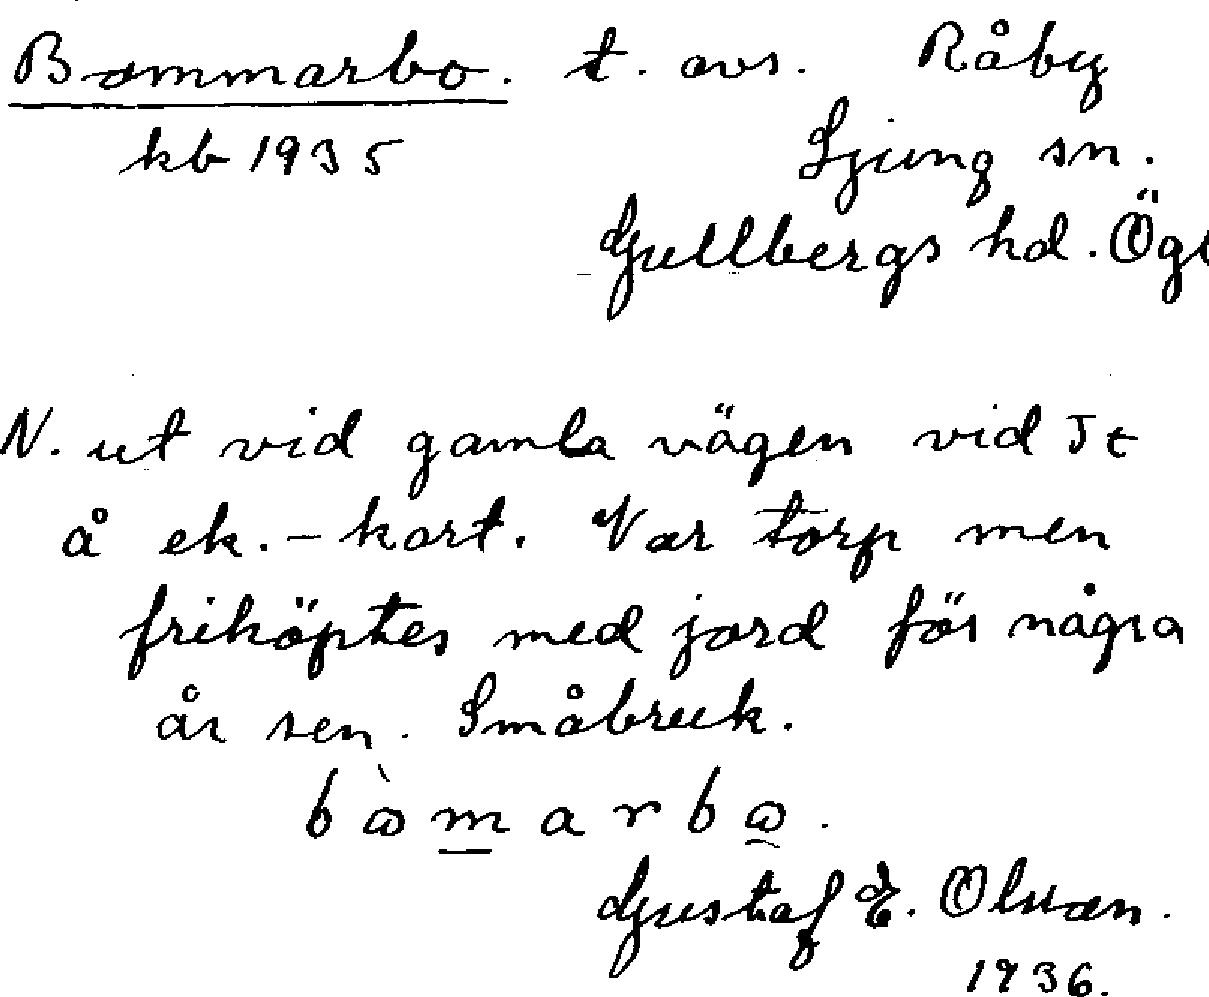 Bommarbo. t. avs. Råby
kb 1935 Ljung sn.
Gullbergs hd. Ög
N. ut vid gamla vägen vid Jt
å ek.-kart. Var torp men
friköptes med jord för några
år sen. Småbruk.
bòmarbo.
Gustaf E. Olsson.
1936.